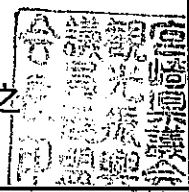 之
宮崎県議会
観光振興
議員連盟
会長印